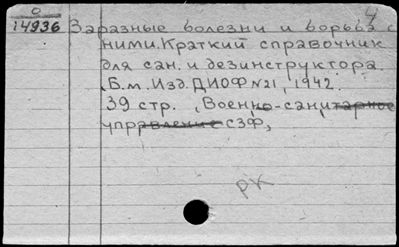 4
О
14936 Заразные болезни и борьба с
ними. Краткий справочник
для сан. и дезинструктора.
Б.м. Изд. ДИОФ №21, 1942.
39 стр. Военно-санитарное
управление СЗФ,
рк